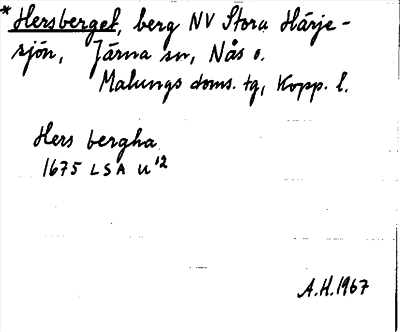 * Hersberget, berg NV Stora Härje-
sjön, Järna sn, Nås o.
Malungs doms. tg, Kopp. l.
Hers bergha
1675 LSA U 12
A.H. 1967